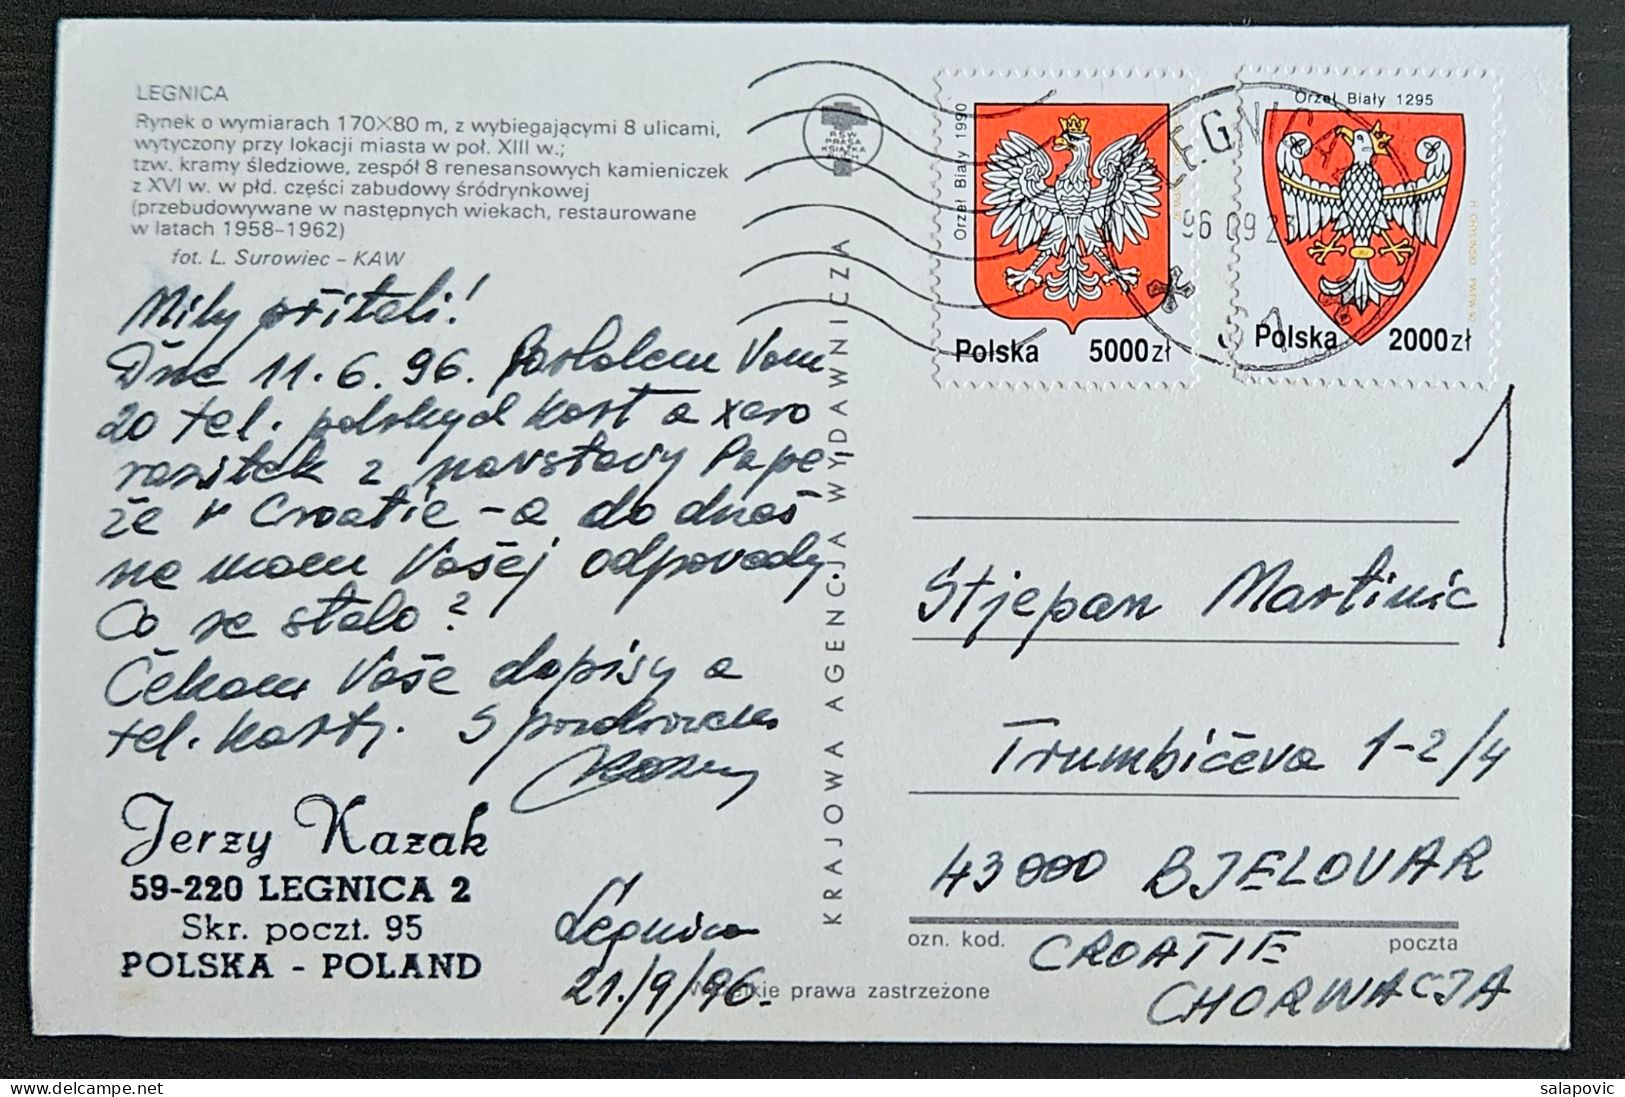 LEGNICA
Rynek o wymiarach 170×80 m, z wybiegającymi 8 ulicami,
wytyczony przy lokacji miasta w poł. XIII w.;
tzw. kramy śledziowe, zespół 8 renesansowych kamieniczek
z XVI w. w płd. części zabudowy śródrynkowej
(przebudowywane w następnych wiekach, restaurowane
w latach 1958–1962)
fot. L. Surowiec – KAW
Mily přiteli!
Dne 11.6.96. poslalem Vam
20 tel. polskych kart a xero
razitek z navstavy Pape
že v Croatie - a do dnes
ne mam Vašej odpovedy.
Co se stalo?
Čekam Vaše dopisy a
tel. karty. S pozdrowem
Jerzy Kazak
59-220 LEGNICA 2
Skr. poczt. 95
POLSKA - POLAND
Legnica
21./9/96.
KRAJOWA AGENCJA WYDAWNICZA
RSW
PRASA
KSIĄŻKA
RUCH
Wszelkie prawa zastrzeżone
Orzeł Biały 1990
Polska 5000 zł
Orzeł Biały 1295
Polska 2000 zł
LEGNICA
96 09 23
1
Stjepan Martinic
Trumbičeva 1-2/4
43000 BJELOVAR
ozn. kod.
poczta
CROATIE
CHORWACJA
salapovic